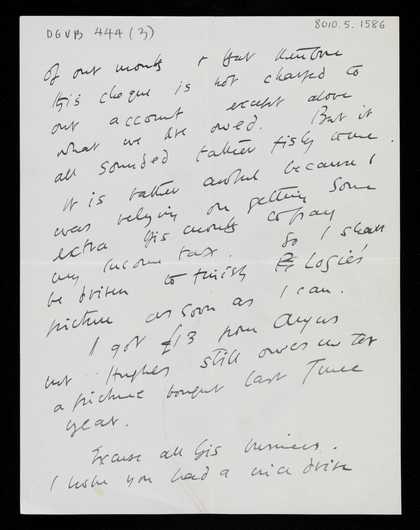 DGVB 444 (3)
8010.5.1586
of out month + that therefore
this cheque is not charged to
our account except above
what we are owed. But it
all sounded rather fishy to me.
It is rather awful because I
was relying on getting some
extra this month to pay
my income tax. So I shall
be driven to finish Logie's
picture as soon as I can.
I got £13 from Angus
but Hughes still owes me for
a picture bought last June
year.
Excuse all this business.
I hope you had a nice drive